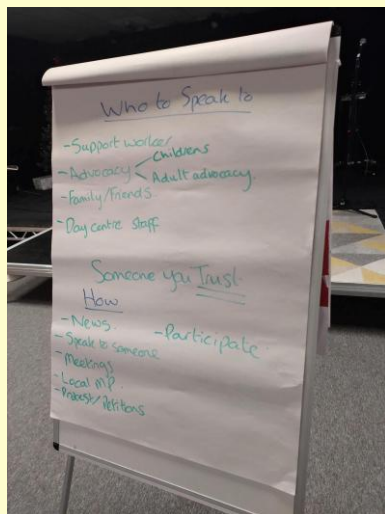 Who to Speak to
- Support worker
- Advocacy < Childrens
Adult advocacy.
- Family/Friends.
- Day centre staff
Someone you Trust.
How
- News.
- Participate
- Speak to someone
- Meetings
- Local MP.
- Protest/Petitions